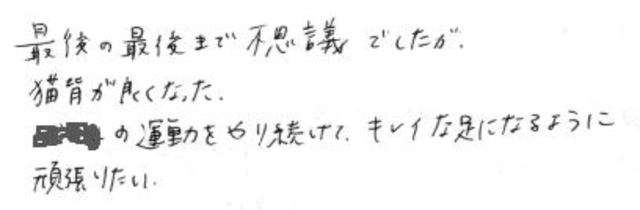 最後の最後まで不思議でしたが、
猫背が良くなった。
の運動をやり続けて、キレイな足になるように
頑張りたい。